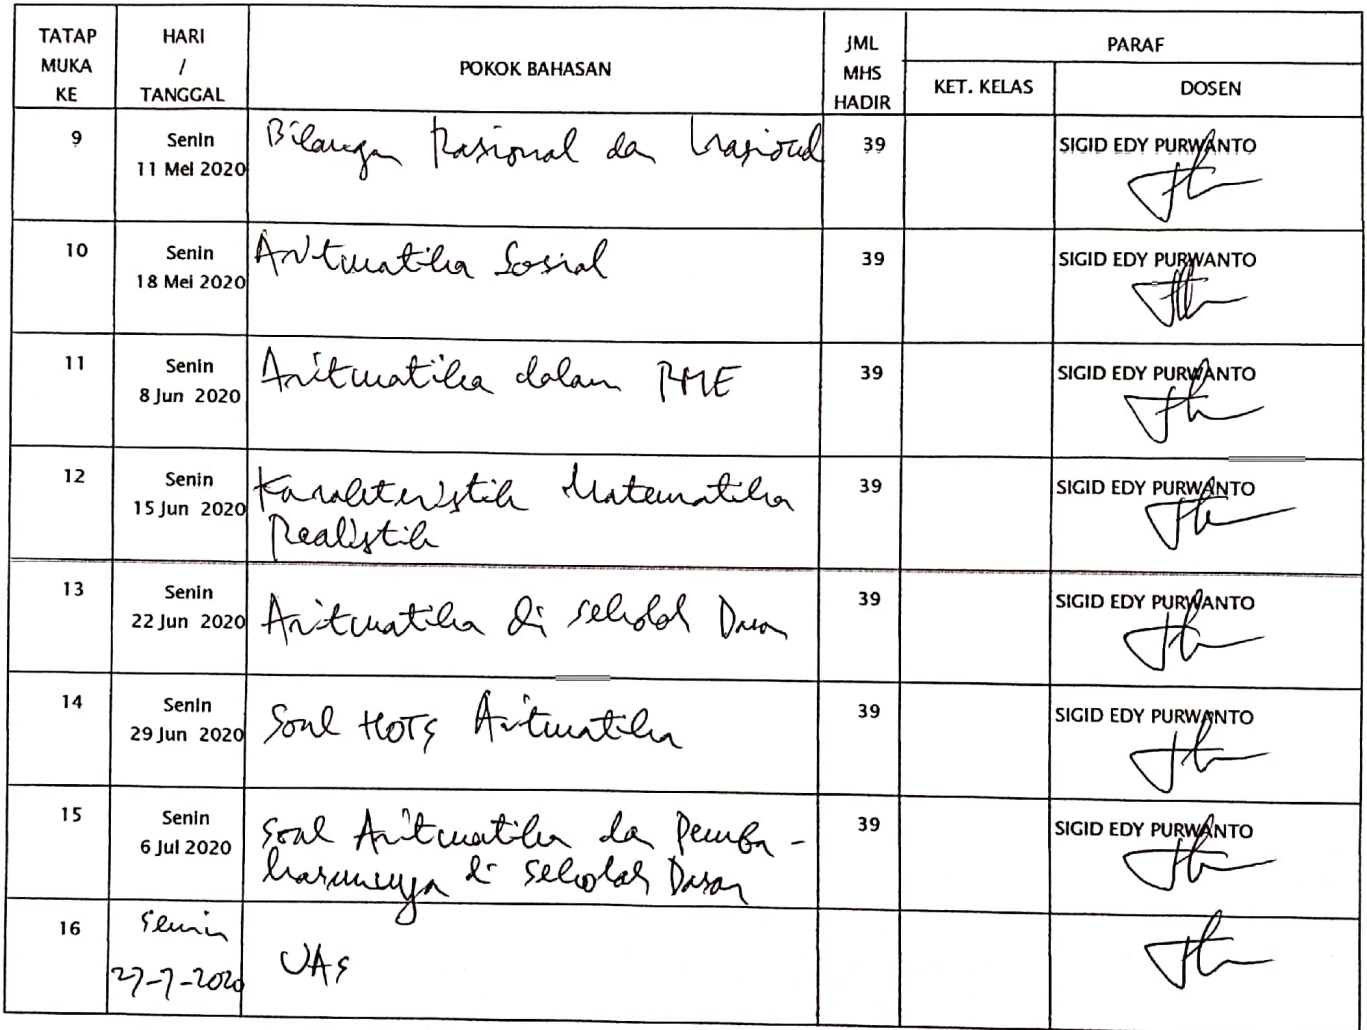 TATAP MUKA KE
HARI / TANGGAL
POKOK BAHASAN
JML MHS HADIR
PARAF
KET. KELAS
DOSEN
9
Senin
11 Mei 2020
Bilangan Rasional dan Irasional
39
SIGID EDY PURWANTO
10
Senin
18 Mei 2020
Aritmatika Sosial
39
SIGID EDY PURWANTO
11
Senin
8 Jun 2020
Aritmatika dalam RME
39
SIGID EDY PURWANTO
12
Senin
15 Jun 2020
Karakteristik Matematika
Realistik
39
SIGID EDY PURWANTO
13
Senin
22 Jun 2020
Aritmatika di Sekolah Dasar
39
SIGID EDY PURWANTO
14
Senin
29 Jun 2020
Soal HOTS Aritmatika
39
SIGID EDY PURWANTO
15
Senin
6 Jul 2020
Soal Aritmatika dan Pemba-
hasannya di Sekolah Dasar
39
SIGID EDY PURWANTO
16
Senin
27-7-2020
UAS